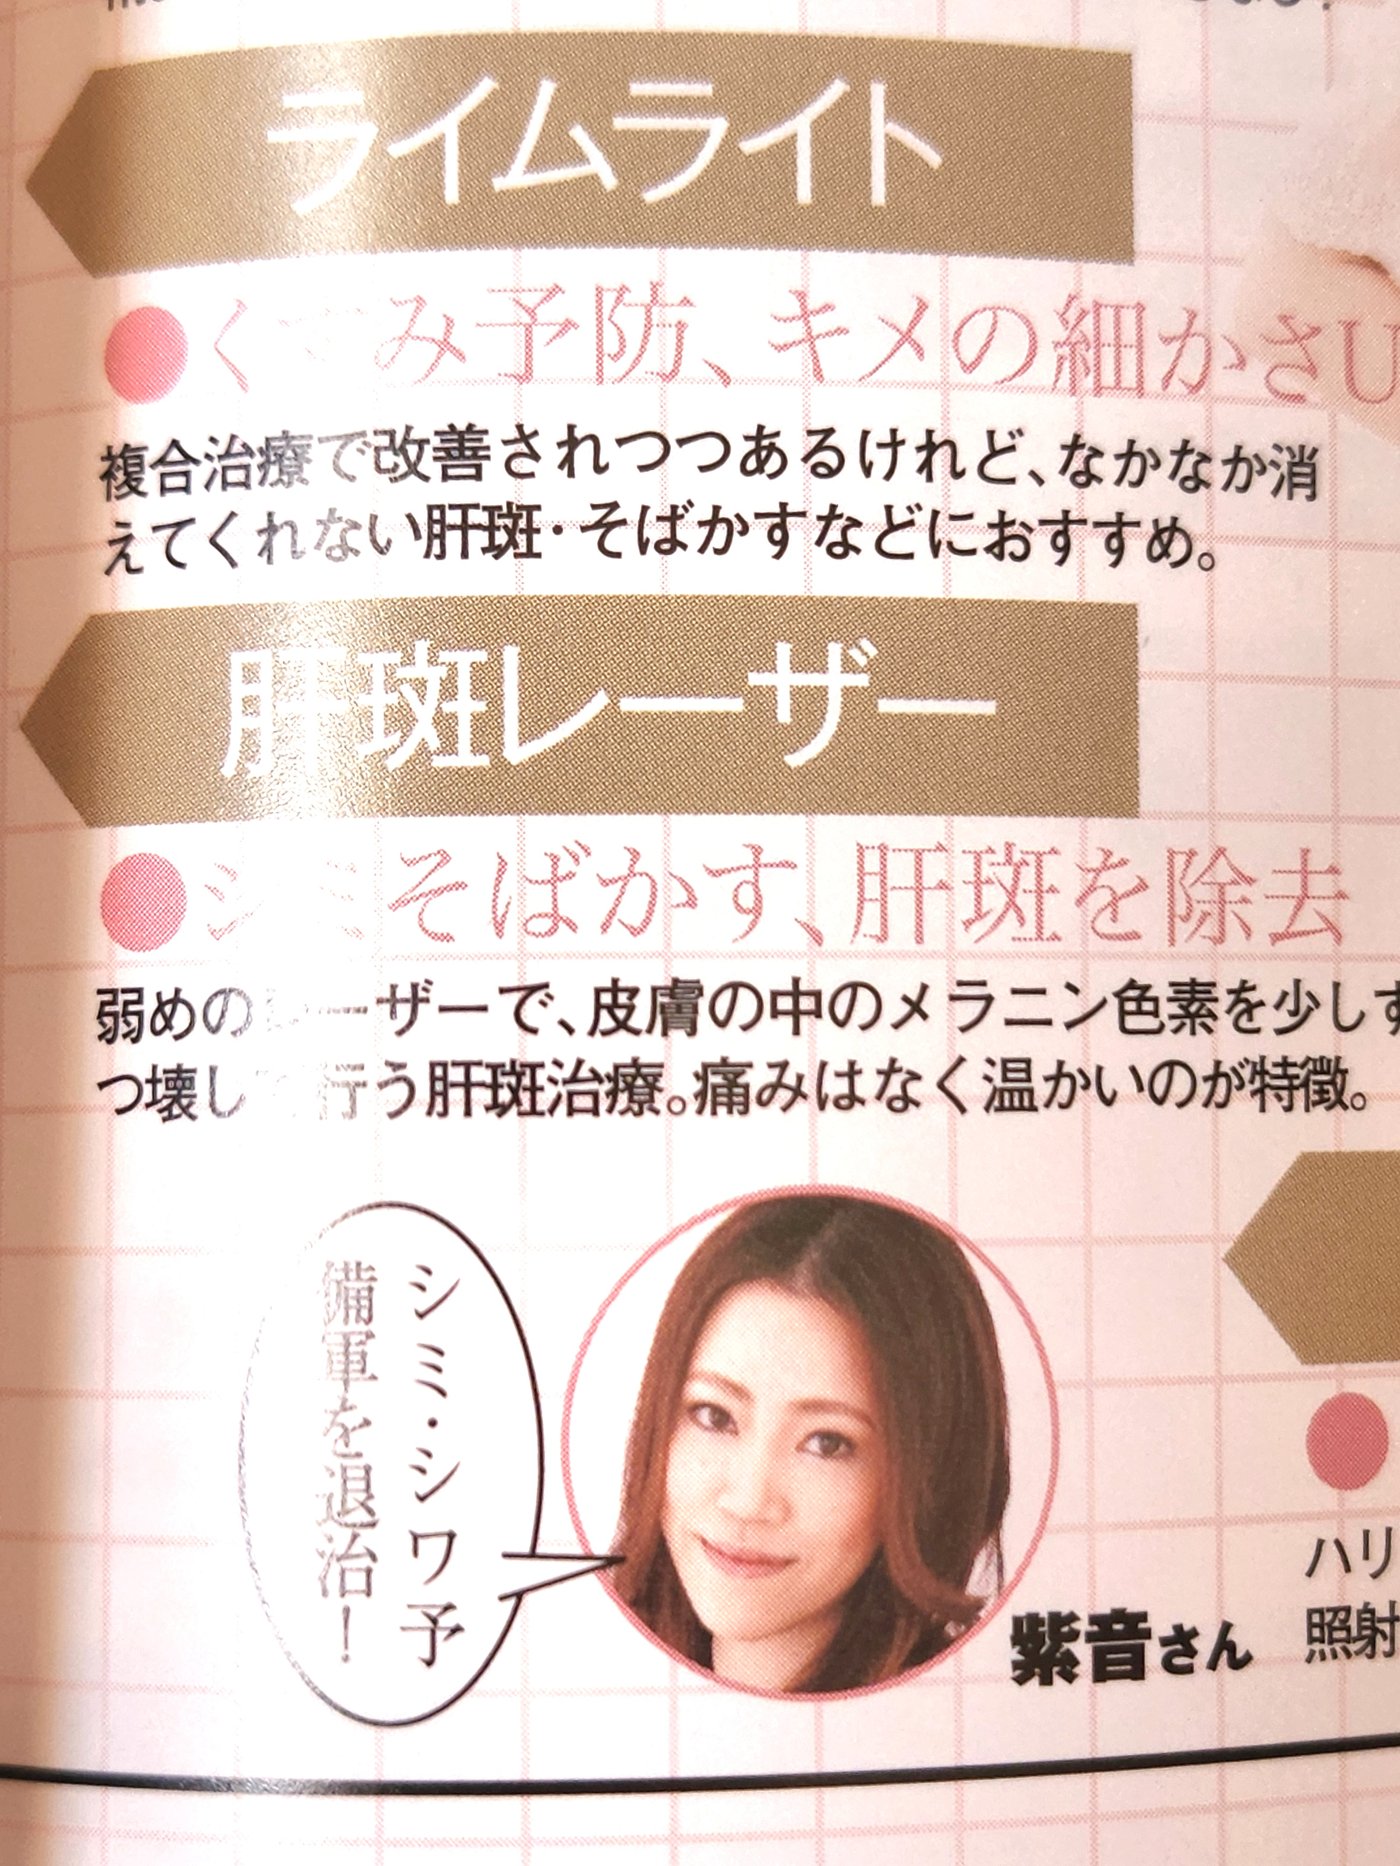 ライムライト
●くすみ予防、キメの細かさU
複合治療で改善されつつあるけれど、なかなか消
えてくれない肝斑・そばかすなどにおすすめ。
肝斑レーザー
●シミそばかす、肝斑を除去
弱めのレーザーで、皮膚の中のメラニン色素を少しず
つ壊して行う肝斑治療。痛みはなく温かいのが特徴。
シミ・シワ予
備軍を退治!
紫音さん
ハリ
照射